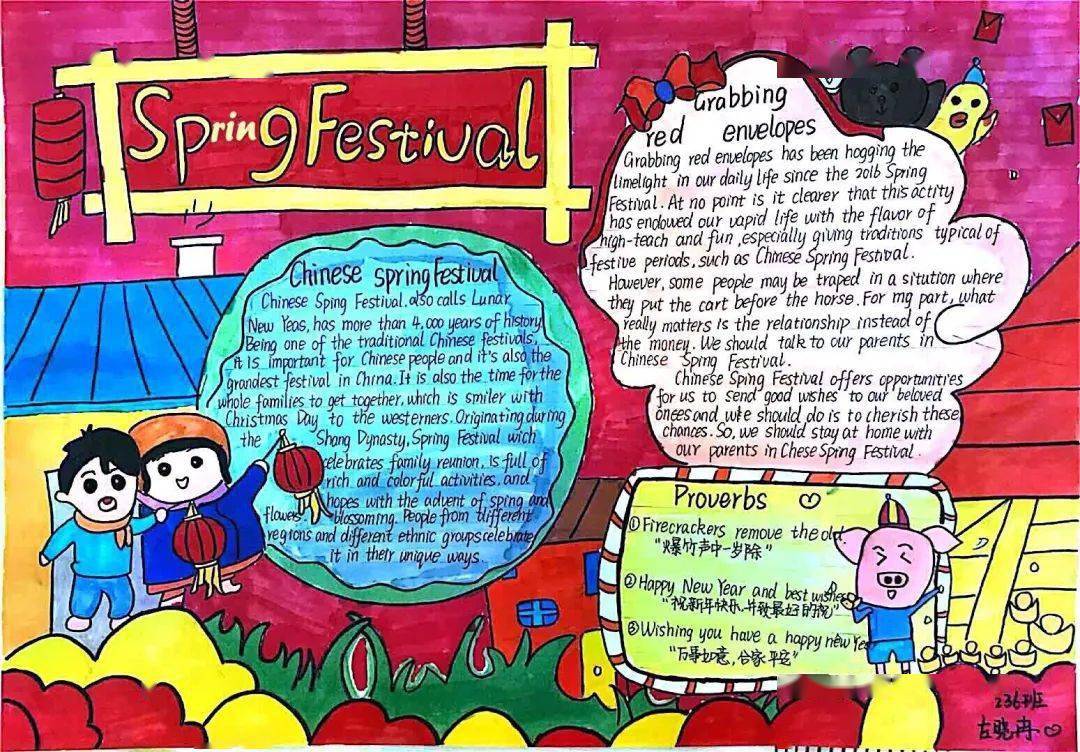 Spring Festival
Chinese spring Festival
Chinese Sping Festival, also calls Lunar
New Yeas, has more than 4,000 years of history.
Being one of the traditional Chinese festivals,
it is important for Chinese people and it's also the
grandest festival in China. It is also the time for the
whole families to get together, which is smiler with
Christmas Day to the westerners. Originating during
the Shang Dynasty, Spring Festival wich
celebrates family reunion, is full of
rich and colorful activities, and
hopes with the advent of sping and
flowers blossoming. People from different
regions and different ethnic groups celebrate
it in their unique ways.
Grabbing
red envelopes
Grabbing red envelopes has been hogging the
limelight in our daily life since the 2016 Spring
Festival. At no point is it clearer that this actity
has endowed our vapid life with the flavor of
high-teach and fun, especially giving traditions typical of
festive periods, such as Chinese Spring Festival.
However, some people may be traped in a sitution where
they put the cart before the horse. For my part, what
really matters is the relationship instead of
the money. We should talk to our parents in
Chinese Sping Festival.
Chinese Sping Festival offers opportunities
for us to send good wishes to our beloved
onees and we should do is to cherish these
chances. So, we should stay at home with
our parents in Chese Sping Festival.
Proverbs
①Firecrackers remove the old.
"爆竹声中一岁除"
②Happy New Year and best wishes
"祝新年快乐,并致最好的祝"
③Wishing you have a happy new Yea
"万事如意,合家平安"
236班
左晓冉